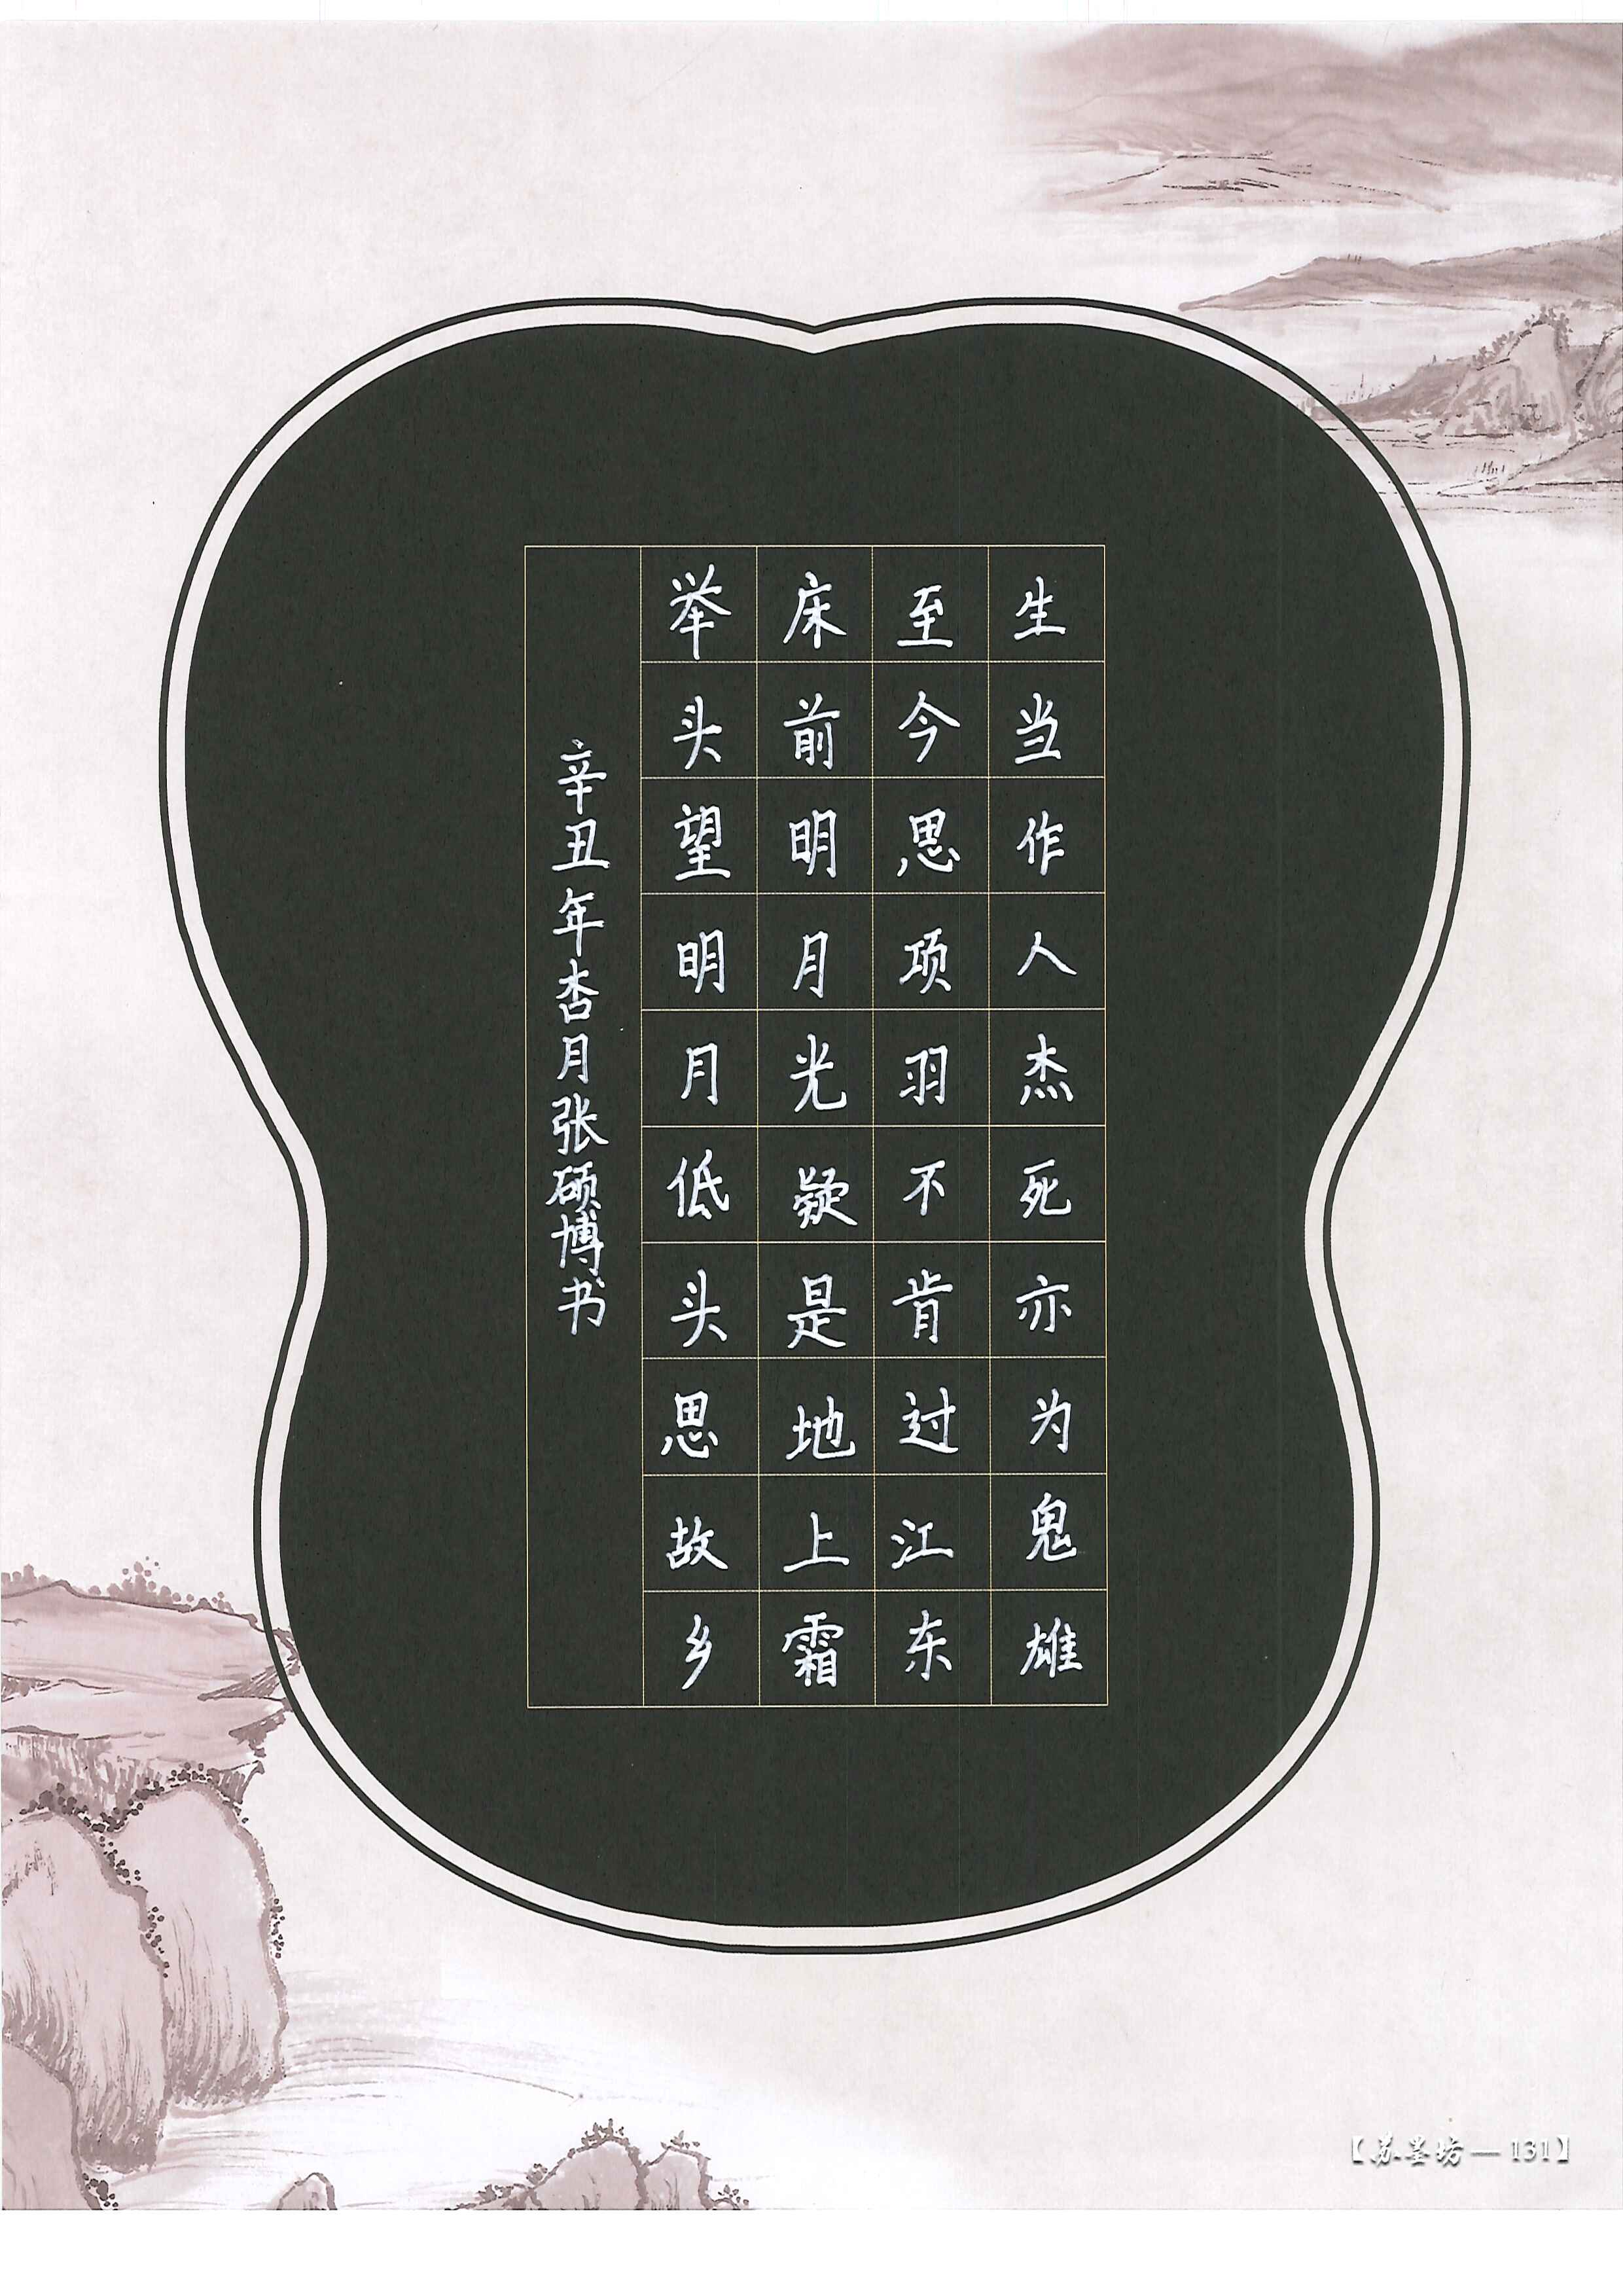 生当作人杰死亦为鬼雄
至今思项羽不肯过江东
床前明月光疑是地上霜
举头望明月低头思故乡
辛丑年杏月张硕博书
【苏墨坊—131】